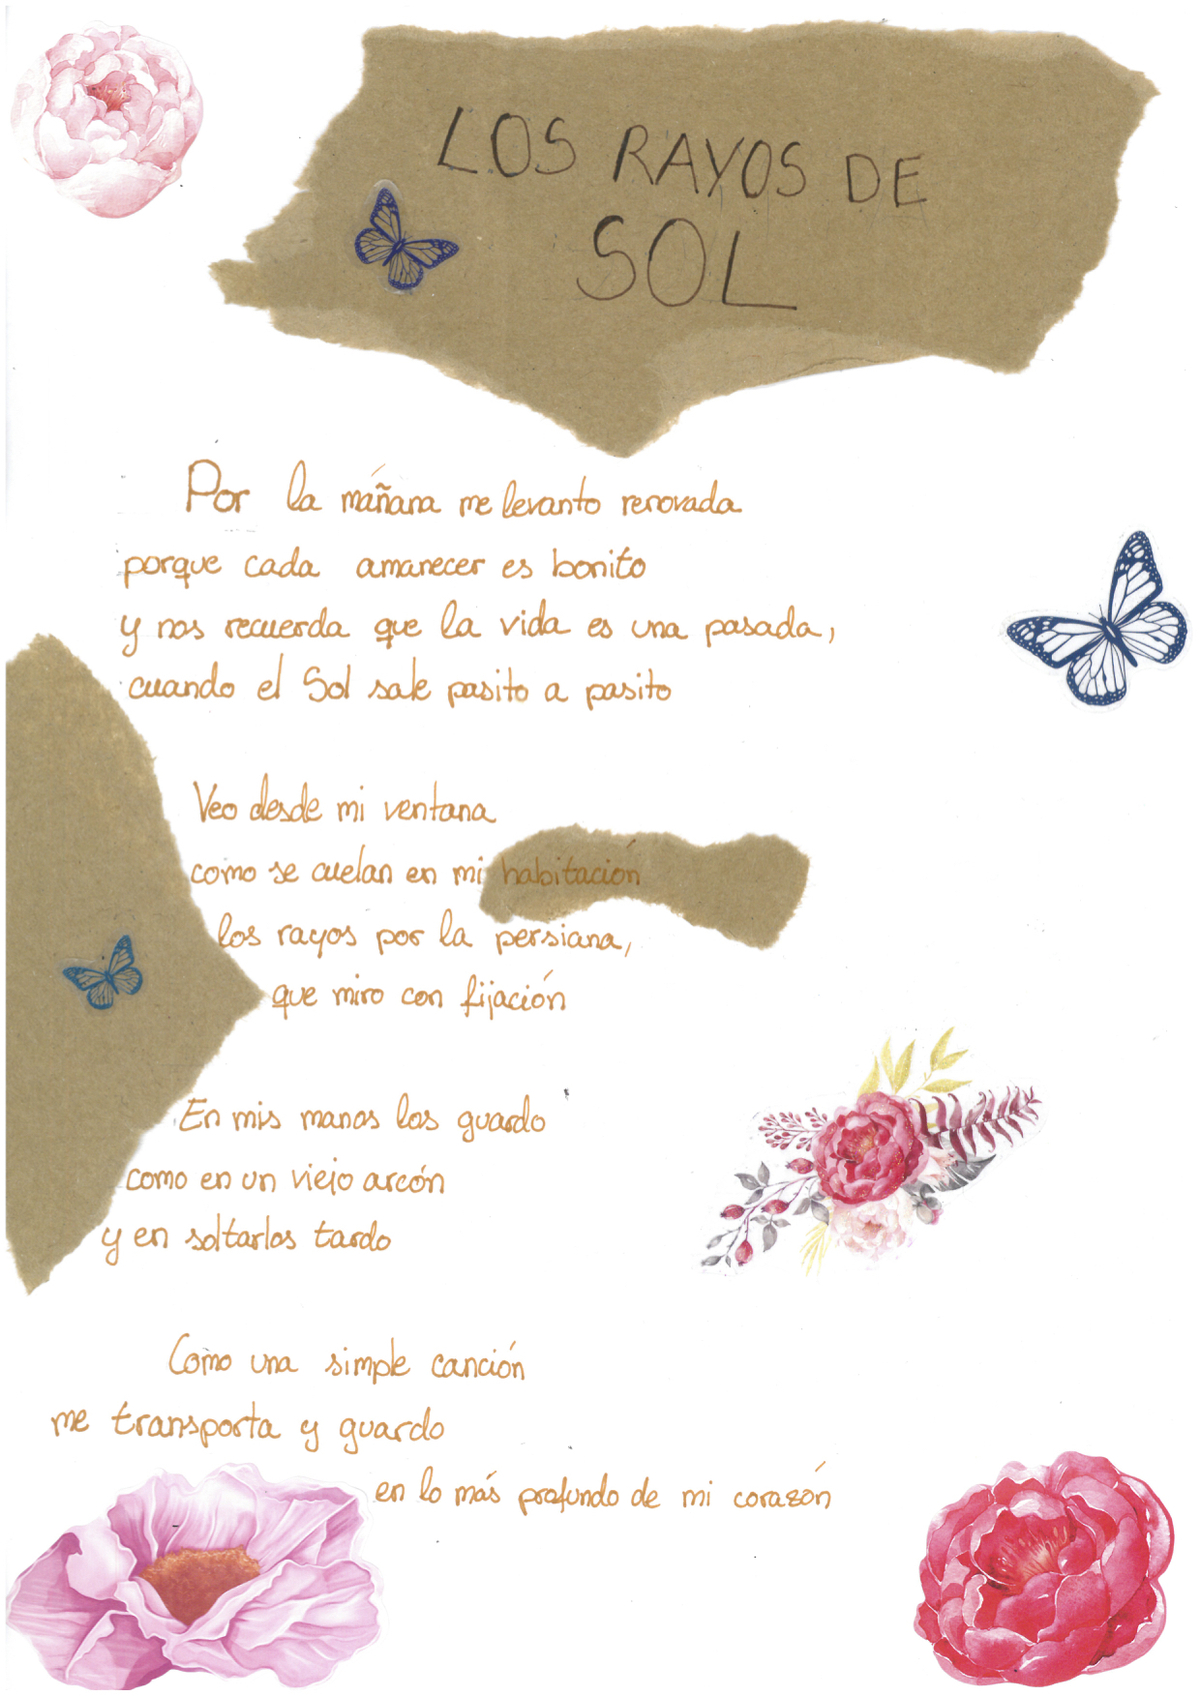 LOS RAYOS DE
SOL
Por la mañana me levanto renovada
porque cada amanecer es bonito
y nos recuerda que la vida es una pasada,
cuando el Sol sale pasito a pasito
Veo desde mi ventana
como se cuelan en mi habitación
los rayos por la persiana,
que miro con fijación
En mis manos los guardo
como en un viejo arcón
y en soltarlos tardo
Como una simple canción
me transporta y guardo
en lo más profundo de mi corazón